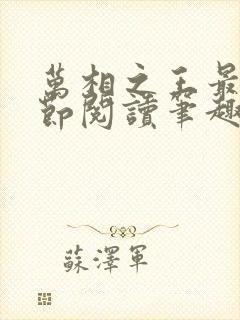 萬相之王最
節閱讀筆趣
蘇澤軍